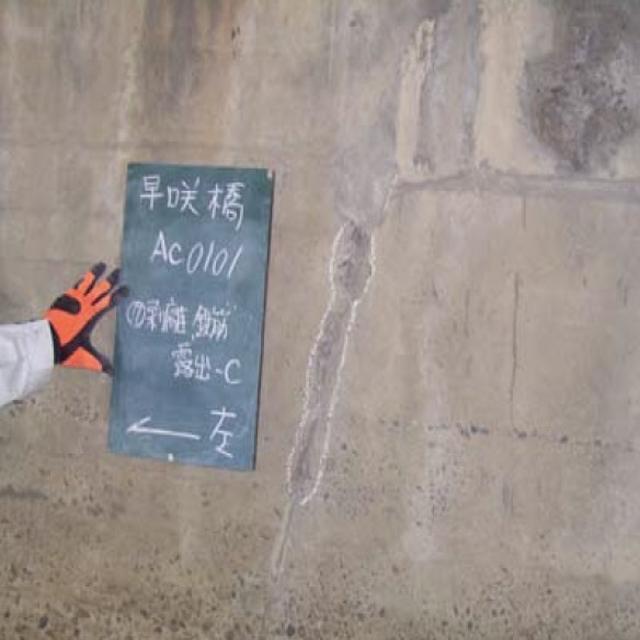 早咲橋
Ac0101
⑦剥離 鉄筋
露出-C
← 左